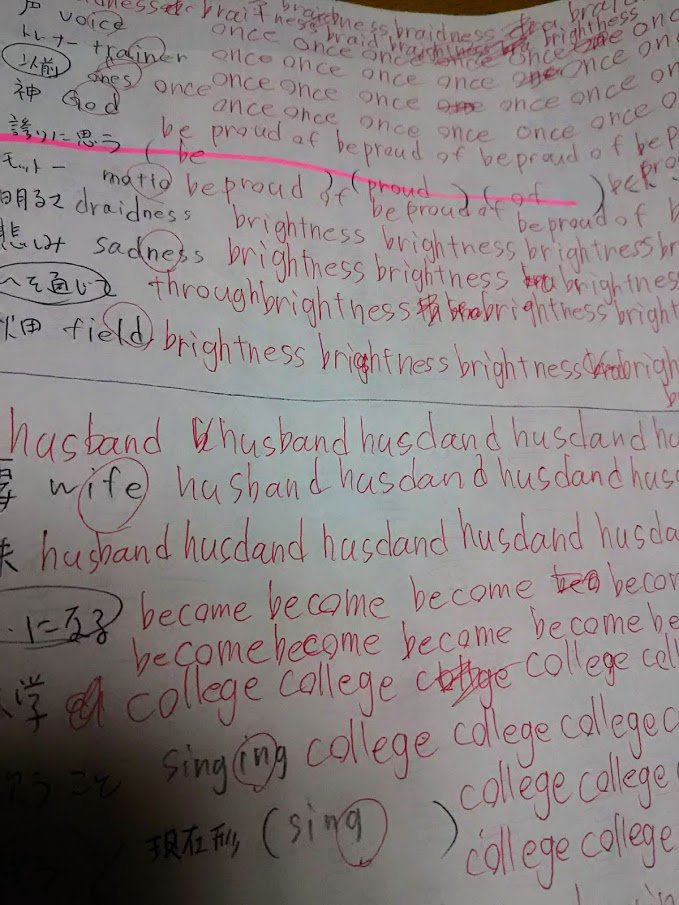 braitness braidness braidness
声 voice braid braidness brightness
トレーナー trainer once once once once once once
以前 ones once once once once once once once
神 God once once once once once once once
誇りに思う ( be ) ( proud ) ( of )
be proud of be proud of be proud of be p
モットー motto be proud of be proud of be proud of
明るさ draidness brightness brightness brightness br
悲しみ sadness brightness brightness brightness
〜を通じて through brightness brightness bright
畑 field brightness brightness brightness brigh
husband husband husdand husdand hu
妻 wife husband husdand husdand hus
夫 husband husdand husdand husdand husda
になる become become become becom
become become become become be
大学 college college college coll
singing college college college c
歌うこと college college
現在形 ( sing ) college college